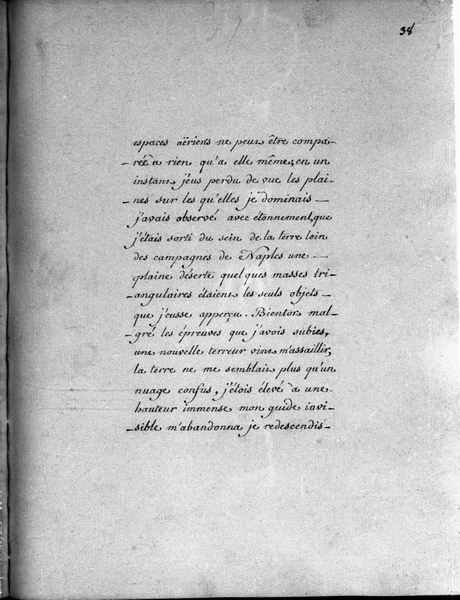 38
espaces aëriens ne peut être compa-
-rée a rien qu'a elle même, en un
instant j'eus perdu de vue les plai-
-nes sur les qu'elles je dominais —
j'avais observé avec etonnement, que
j'étais sorti du sein de la terre loin
des campagnes de Naples une —
plaine déserte quelques masses tri-
-angulaires étaient les seuls objets —
que j'eusse apperçu. Bientot mal-
-gré les épreuves que j'avois subies,
une nouvelle terreur vint m'assaillir,
la terre ne me semblait plus qu'un
nuage confus, j'étois élevé à une
hauteur immense mon guide invi-
-sible m'abandonna je redescendis-